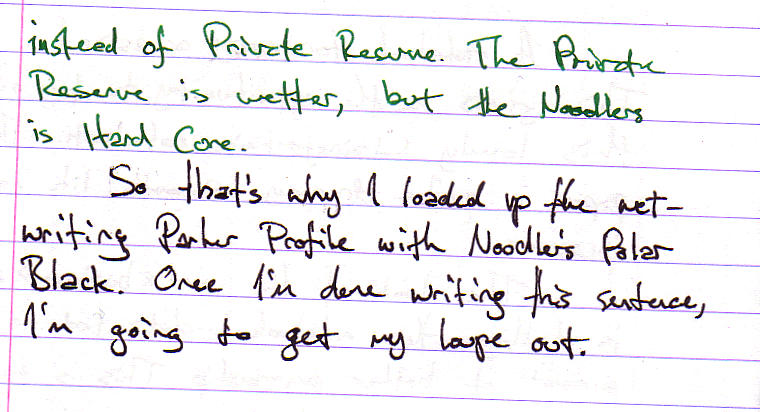 instead of Private Reserve. The Private
Reserve is wetter, but the Noodlers
is Hard Core.
So that's why I loaded up the wet-
writing Parker Profile with Noodler's Polar
Black. Once I'm done writing this sentence,
I'm going to get my loupe out.